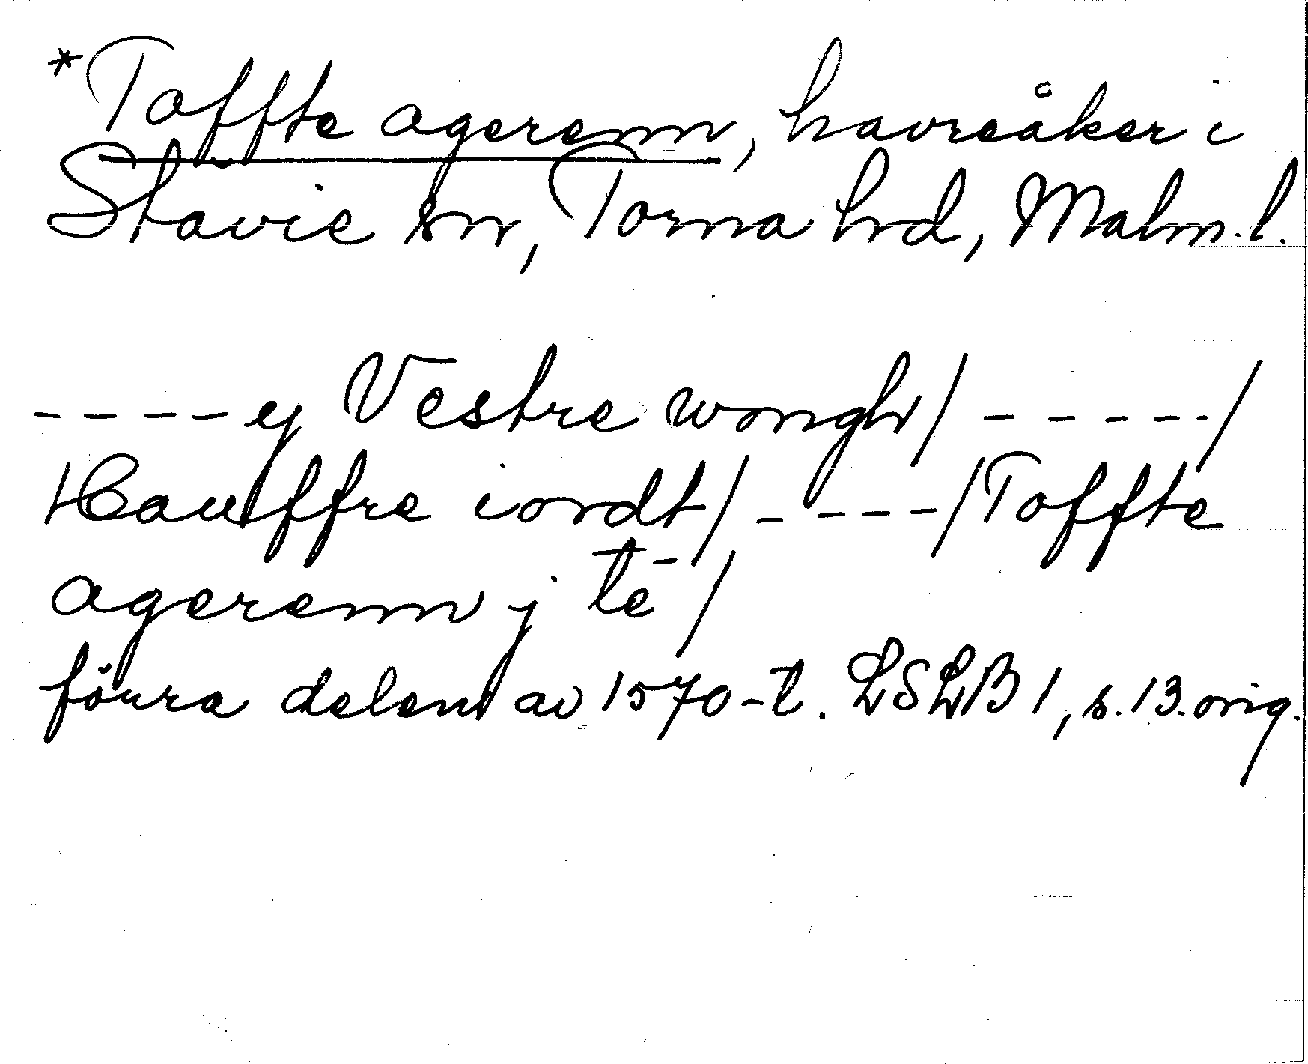 *Toffte agerenn, havreåker i
Stävie sn, Torna hd, Malm. l.
----ej Vestre wongh/ -----/
Hauffre iordt/ ----/Toffte
agerenn j tē/
förra delen av 1570-t. LSLB 1, s. 13. orig.